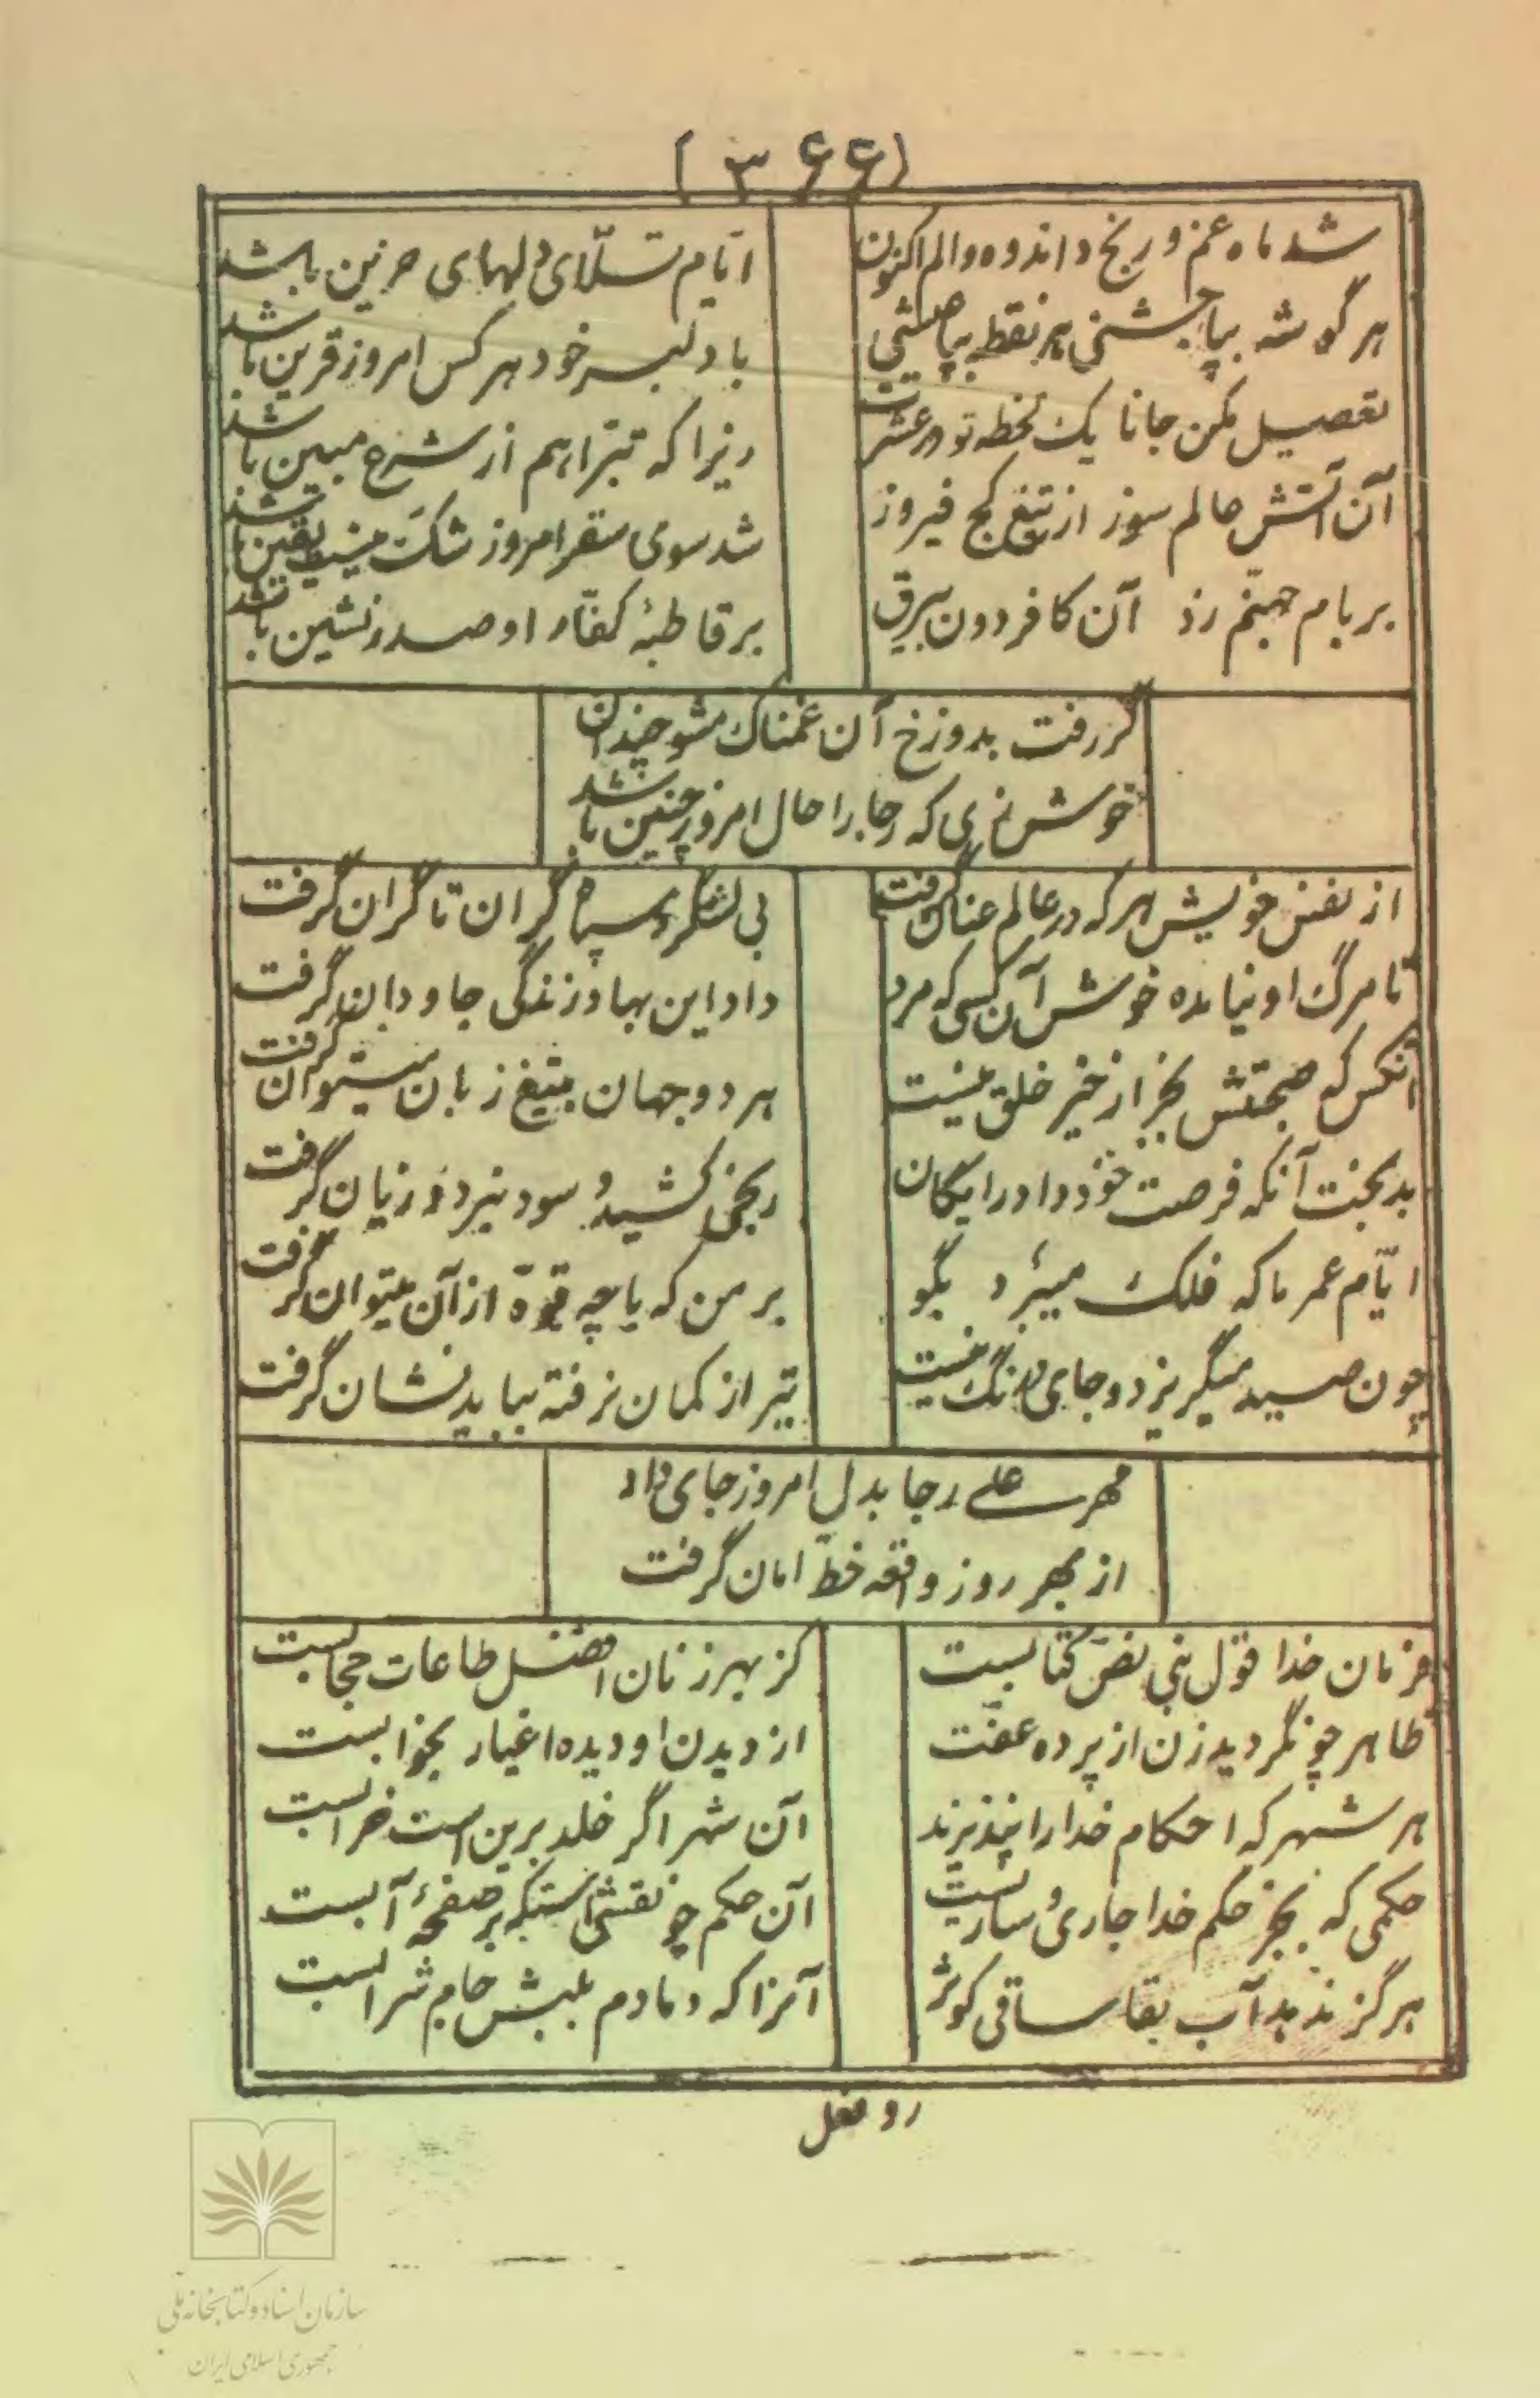 (۳۶۶)
شد ماه غم و رنج و اندوه و الم اکنون
ایّام تسلّای دلهای حزین باشد
هر گوشه بپا جشنی هر نقطه بپا عیشی
با دلبر خود هر کس امروز قرین باشد
تعصیل مکن جانا یک لحظه تو در عشرت
زیرا که تبرّا هم از شرع مبین باشد
آن آتش عالم سوز از تیغ کج فیروز
شد سوی سقر امروز شک نیست یقین باشد
بر بام جهنّم زد آن کافر دون بیرق
بر قاطبهٔ کفّار او صدر نشین باشد
گر رفت بدوزخ آن غمناک مشو چندان
خوش زی که رجا را حال امروز چنین باشد
از نفس خویش هر که در عالم عنان گرفت
بی لشگر و سپاه گران تا گران گرفت
تا مرگ او نیامده خوش آن کسی که مرد
داد این بها و زندگی جاودان گرفت
آنکس که صحبتش بجز از خیر خلق نیست
هر دو جهان بتیغ زبان میتوان گرفت
بدبخت آنکه فرصت خود داد رایگان
رنجی کشید و سود نبرد و زیان گرفت
ایّام عمر ما که فلک میبرد بگو
بر من که با چه قوّة از آن میتوان گرفت
چون صید میگریزد و جای درنگ نیست
تیر از کمان نرفته بباید نشان گرفت
مهر علی رجا بدل امروز جای داد
از بهر روز واقعه خطّ امان گرفت
فرمان خدا قول نبی نصّ کتابست
کز بهر زنان افضل طاعات حجابست
ظاهر چو نگردید زن از پرده عفّت
از دیدن او دیده اغیار بخوابست
هر شهر که احکام خدا را نپذیرند
آن شهر اگر خلد برین است خرابست
حکمی که بجز حکم خدا جاری و ساریست
آن حکم چو نقشی استکه بر صفحهٔ آبست
هرگز ندهد آب بقا ساقی کوثر
آنرا که دمادم بلبش جام شرابست
سازمان اسناد و کتابخانه ملی
جمهوری اسلامی ایران